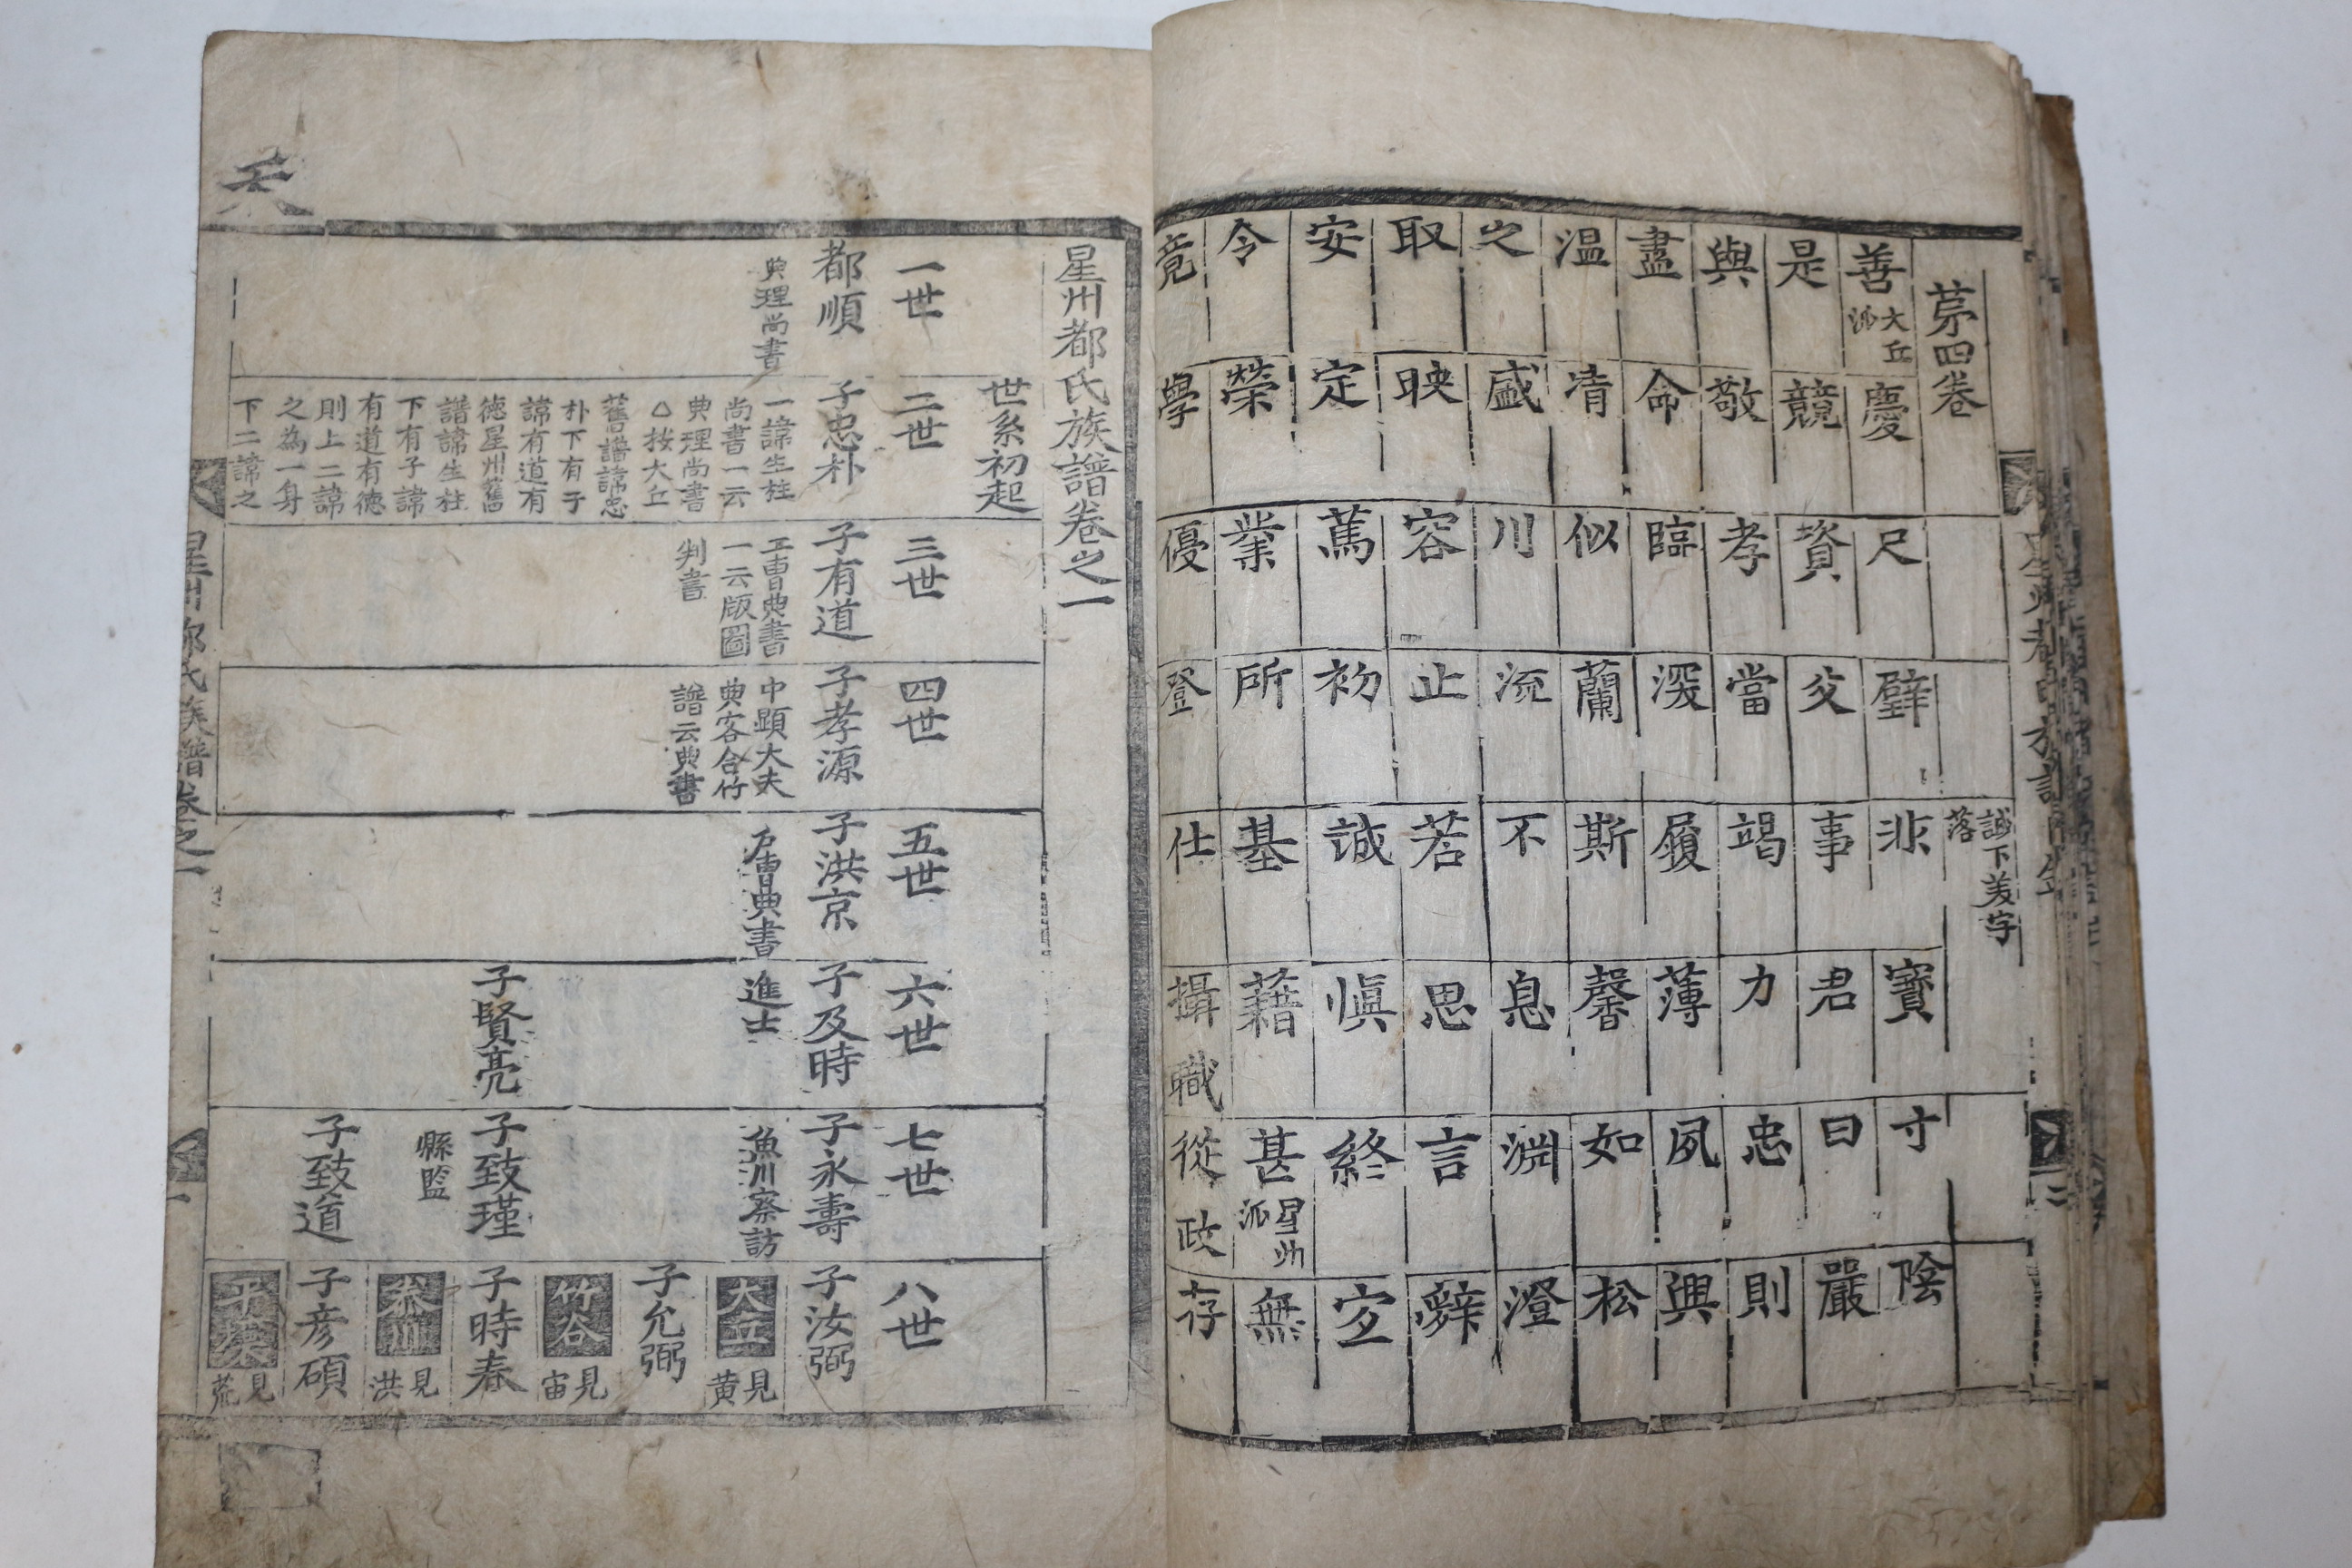 苐四卷
誠下美字
落
善 大丘派 慶 尺 璧 非 寶 寸 陰
是 競 資 父 事 君 曰 嚴
與 敬 孝 當 竭 力 忠 則
盡 命 臨 深 履 薄 夙 興
温 凊 似 蘭 斯 馨 如 松
之 盛 川 流 不 息 淵 澄
取 映 容 止 若 思 言 辭
安 定 篤 初 誠 愼 終 宜
令 榮 業 所 基 藉 甚 星州派 無
竟 學 優 登 仕 攝職 從政 存
星州都氏族譜卷之一
世系初起
一世
都順
典理尚書
二世
子忠朴
一諱生柱
尚書一云
典理尚書
△按大丘
舊譜諱忠
朴下有子
諱有道有
德星州舊
譜諱生柱
下有子諱
有道有德
則上二諱
之為一身
下二諱之
三世
子有道
工曹典書
一云版圖
判書
四世
子孝源
中顯大夫
典客令竹
譜云典書
五世
子洪京
戶曹典書
六世
子及時
進士
子賢亮
七世
子永壽
魚川察訪
子致瑾
縣監
子致道
八世
子汝弼
大丘
見黄
子允弼
竹谷
見宙
子時春
見洪
子彦碩
見荒
星州都氏族譜卷之一
一